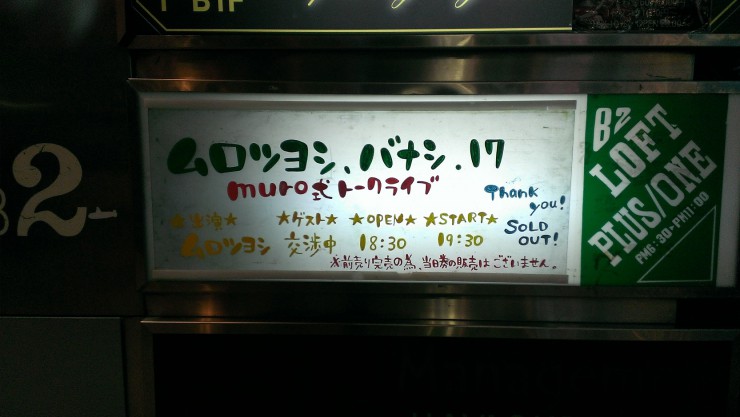 B1F
2
ムロツヨシ、バナシ.17
muro式トークライブ
Thank you!
SOLD OUT!
★出演★ ★ゲスト★ ★OPEN★ ★START★
ムロツヨシ 交渉中 18:30 19:30
※前売り完売の為、当日券の販売はございません。
B2
LOFT
PLUS/ONE
PM6:30-PM11:00